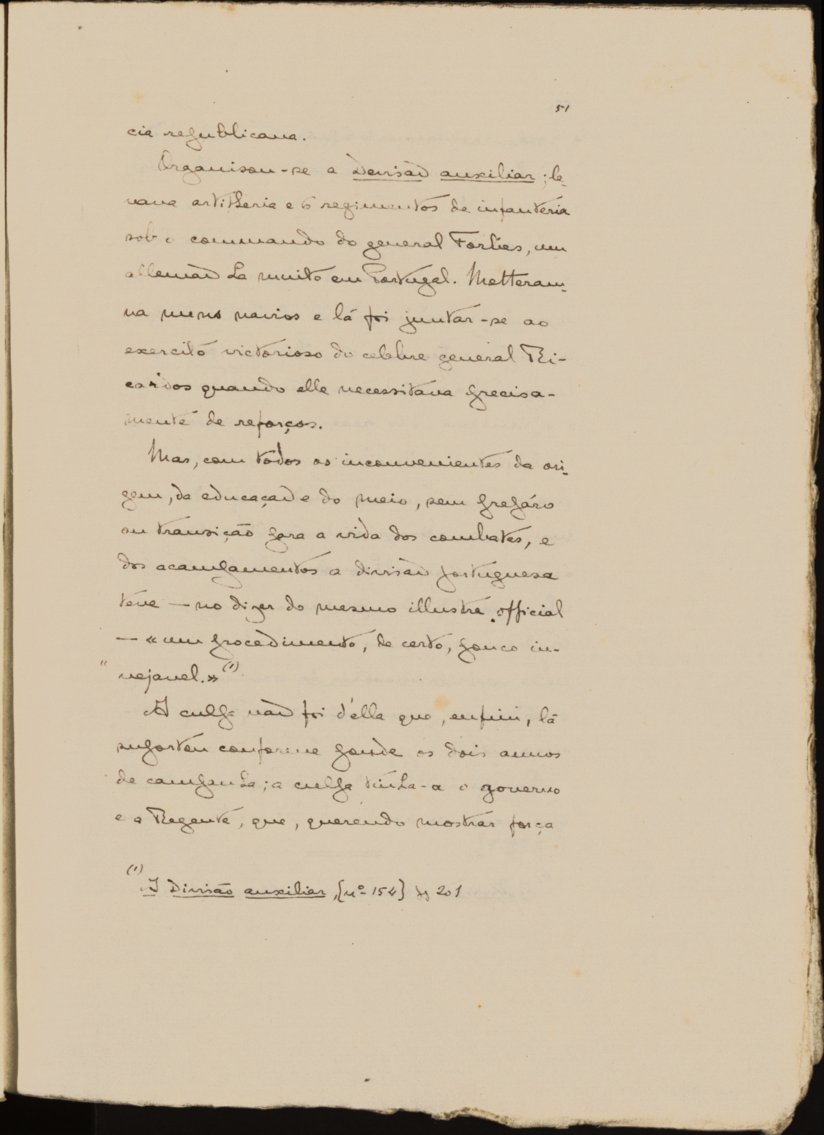 51
cia republicana.
Organisou-se a Devisão auxiliar; le-
vava artilheria e 6 regimentos de infanteria
sob o commando do general Forbes, um
allemão ha muito em Portugal. Metteram-
na nuns navios e lá foi juntar-se ao
exercito victorioso do celebre general Ri-
cardos quando elle necessitava precisa-
mente de reforços.
Mas, com todos os inconvenientes da ori-
gem, da educação e do meio, sem preparo
ou transição para a vida dos combates, e
dos acampamentos a divisão portuguesa
teve — no dizer do mesmo illustre official
— «um procedimento, de certo, pouco in-
" vejavel.» (1)
A culpa não foi d'ella que, enfim, lá
suportou conforme poude os dois annos
de campanha; a culpa tinha-a o governo
e a Regente, que, querendo mostrar força
(1) A Divisão auxiliar, [nº 154] pg 201